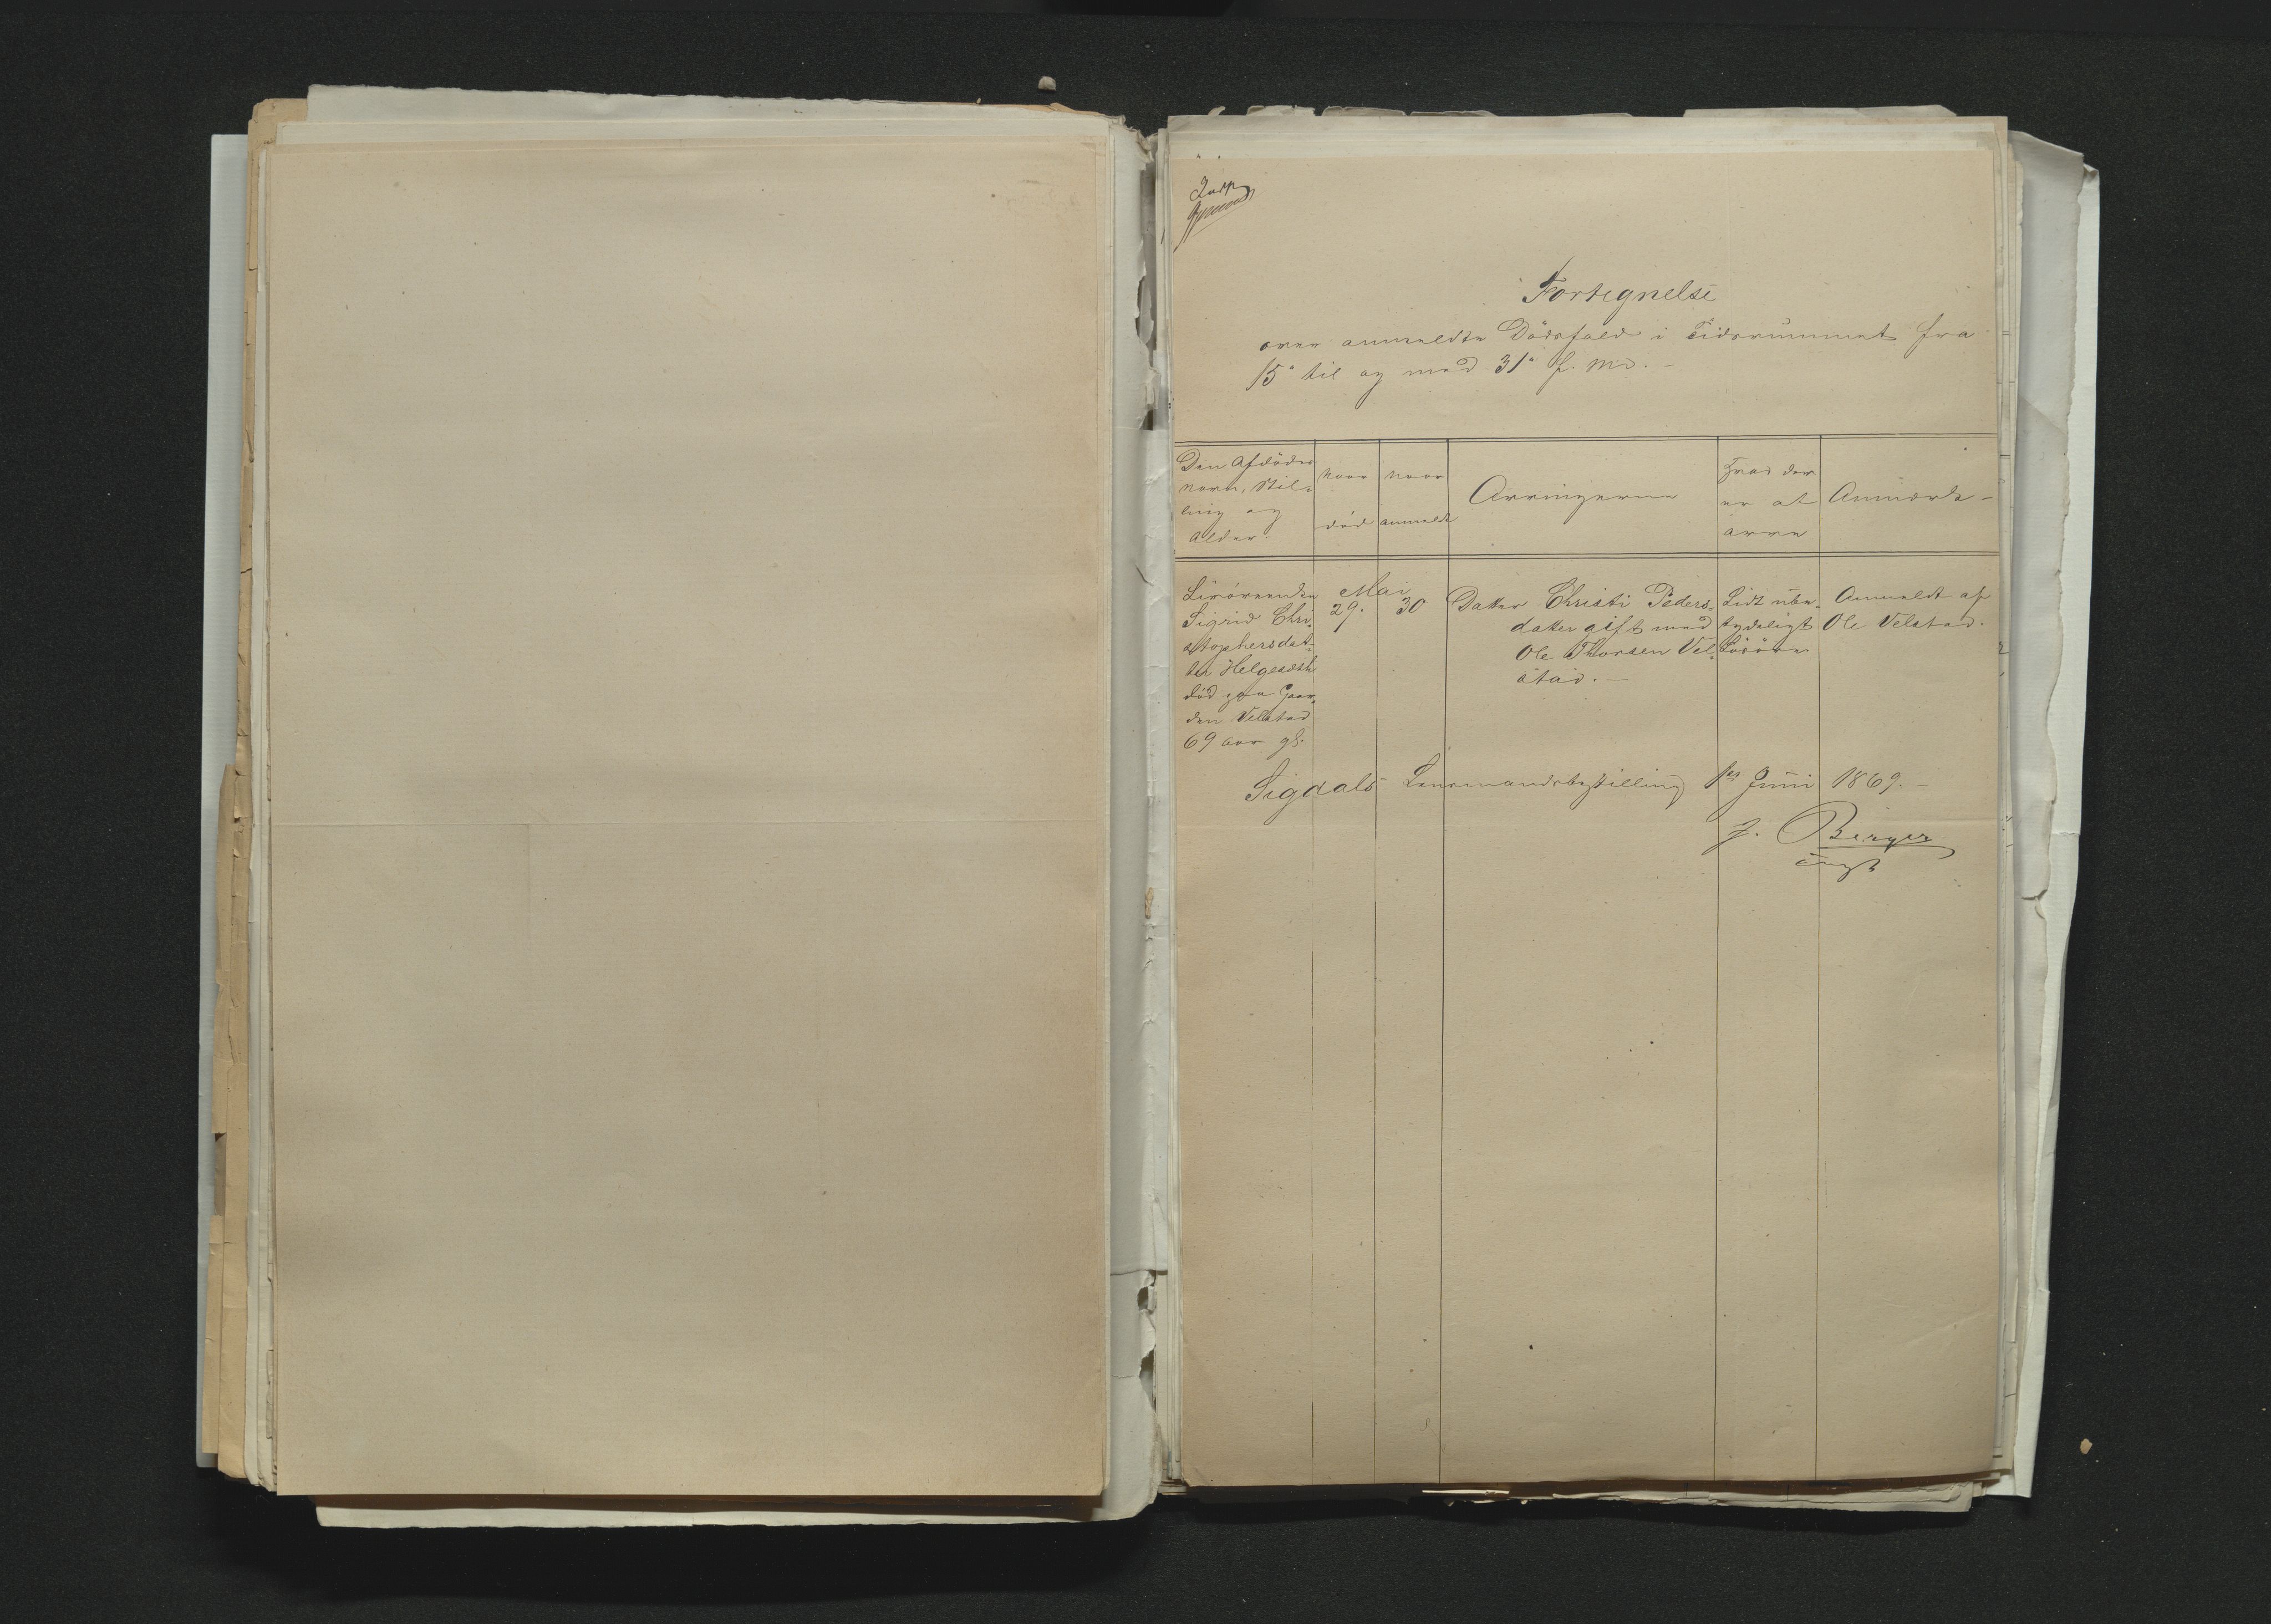 Fortegnelse
over anmeldte Dödsfald i Tidsrummet fra
15de til og med 31te f. Md. –
Den Afdödes
Navn, Stil-
ling og
Alder.
Naar
död
Naar
anmeldt
Arvingerne
Hvad der
er at
arve
Anmærk –
Livörenden
Sigrid Chri-
stophersdat-
ter Helgesæth
död paa Gaar-
den Velstad
69 Aar gl.
Mai
29.
30
Datter Christi Peders-
datter gift med
Ole Thorsen Vel-
stad. –
Lidt ube-
tydeligt
Lösöre
Anmeldt af
Ole Velstad.
Sigdals Lensmandsbestilling 1ste Juni 1869. –
Berger